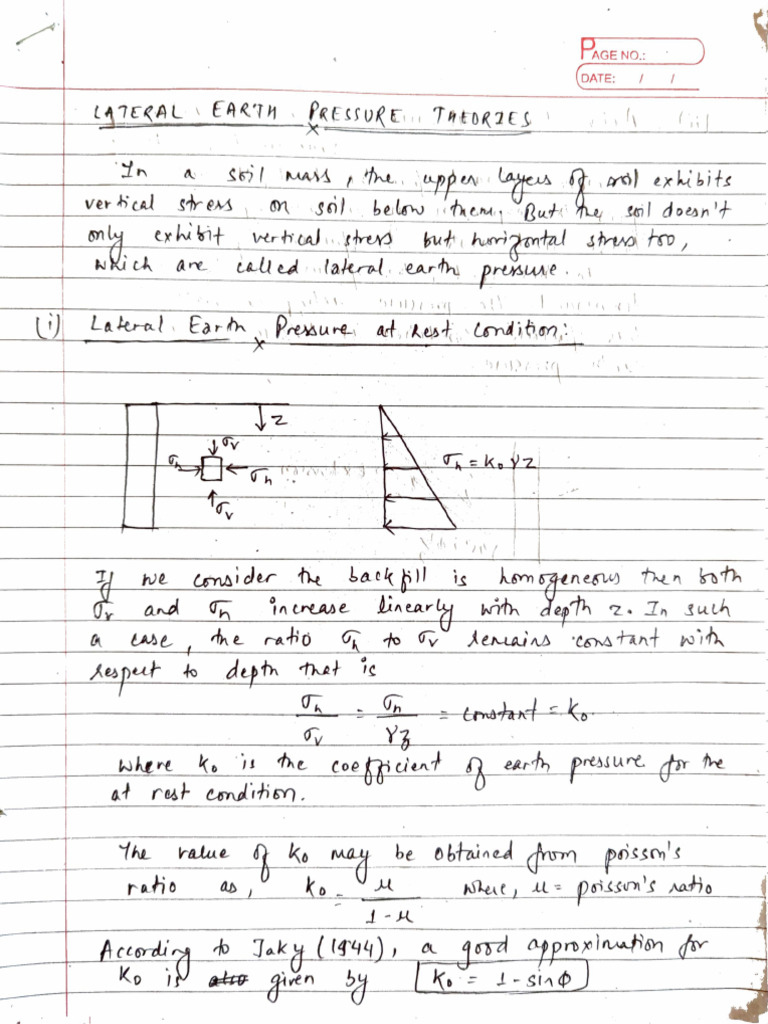 PAGE NO.:
DATE: / /
LATERAL EARTH PRESSURE THEORIES
In a soil mass, the upper layers of soil exhibits
vertical stress on soil below them. But the soil doesn't
only exhibit vertical stress but horizontal stress too,
which are called lateral earth pressure.
(i) Lateral Earth Pressure at rest condition:
z
σv
σh
σh
σv
σh = K₀γz
If we consider the backfill is homogeneous then both
σv and σh increase linearly with depth z. In such
a case, the ratio σh to σv remains constant with
respect to depth that is
σh/σv = σh/γz = constant = K₀.
where K₀ is the coefficient of earth pressure for the
at rest condition.
The value of K₀ may be obtained from poisson's
ratio as, K₀ = μ/1-μ where, μ = poisson's ratio
According to Jaky (1944), a good approximation for
K₀ is given by K₀ = 1 - sinϕ